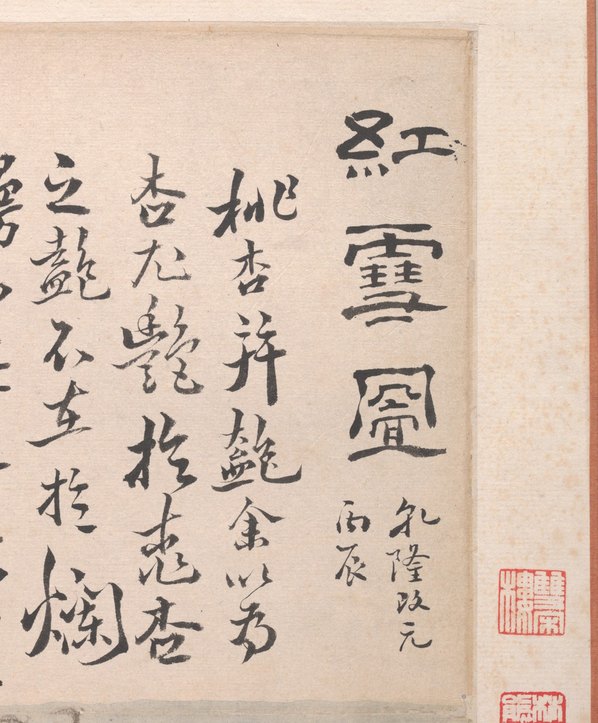 紅雪圖
乾隆改元
丙辰
桃杏并艷余以為
杏尤艷於桃杏
之艷不在於爛